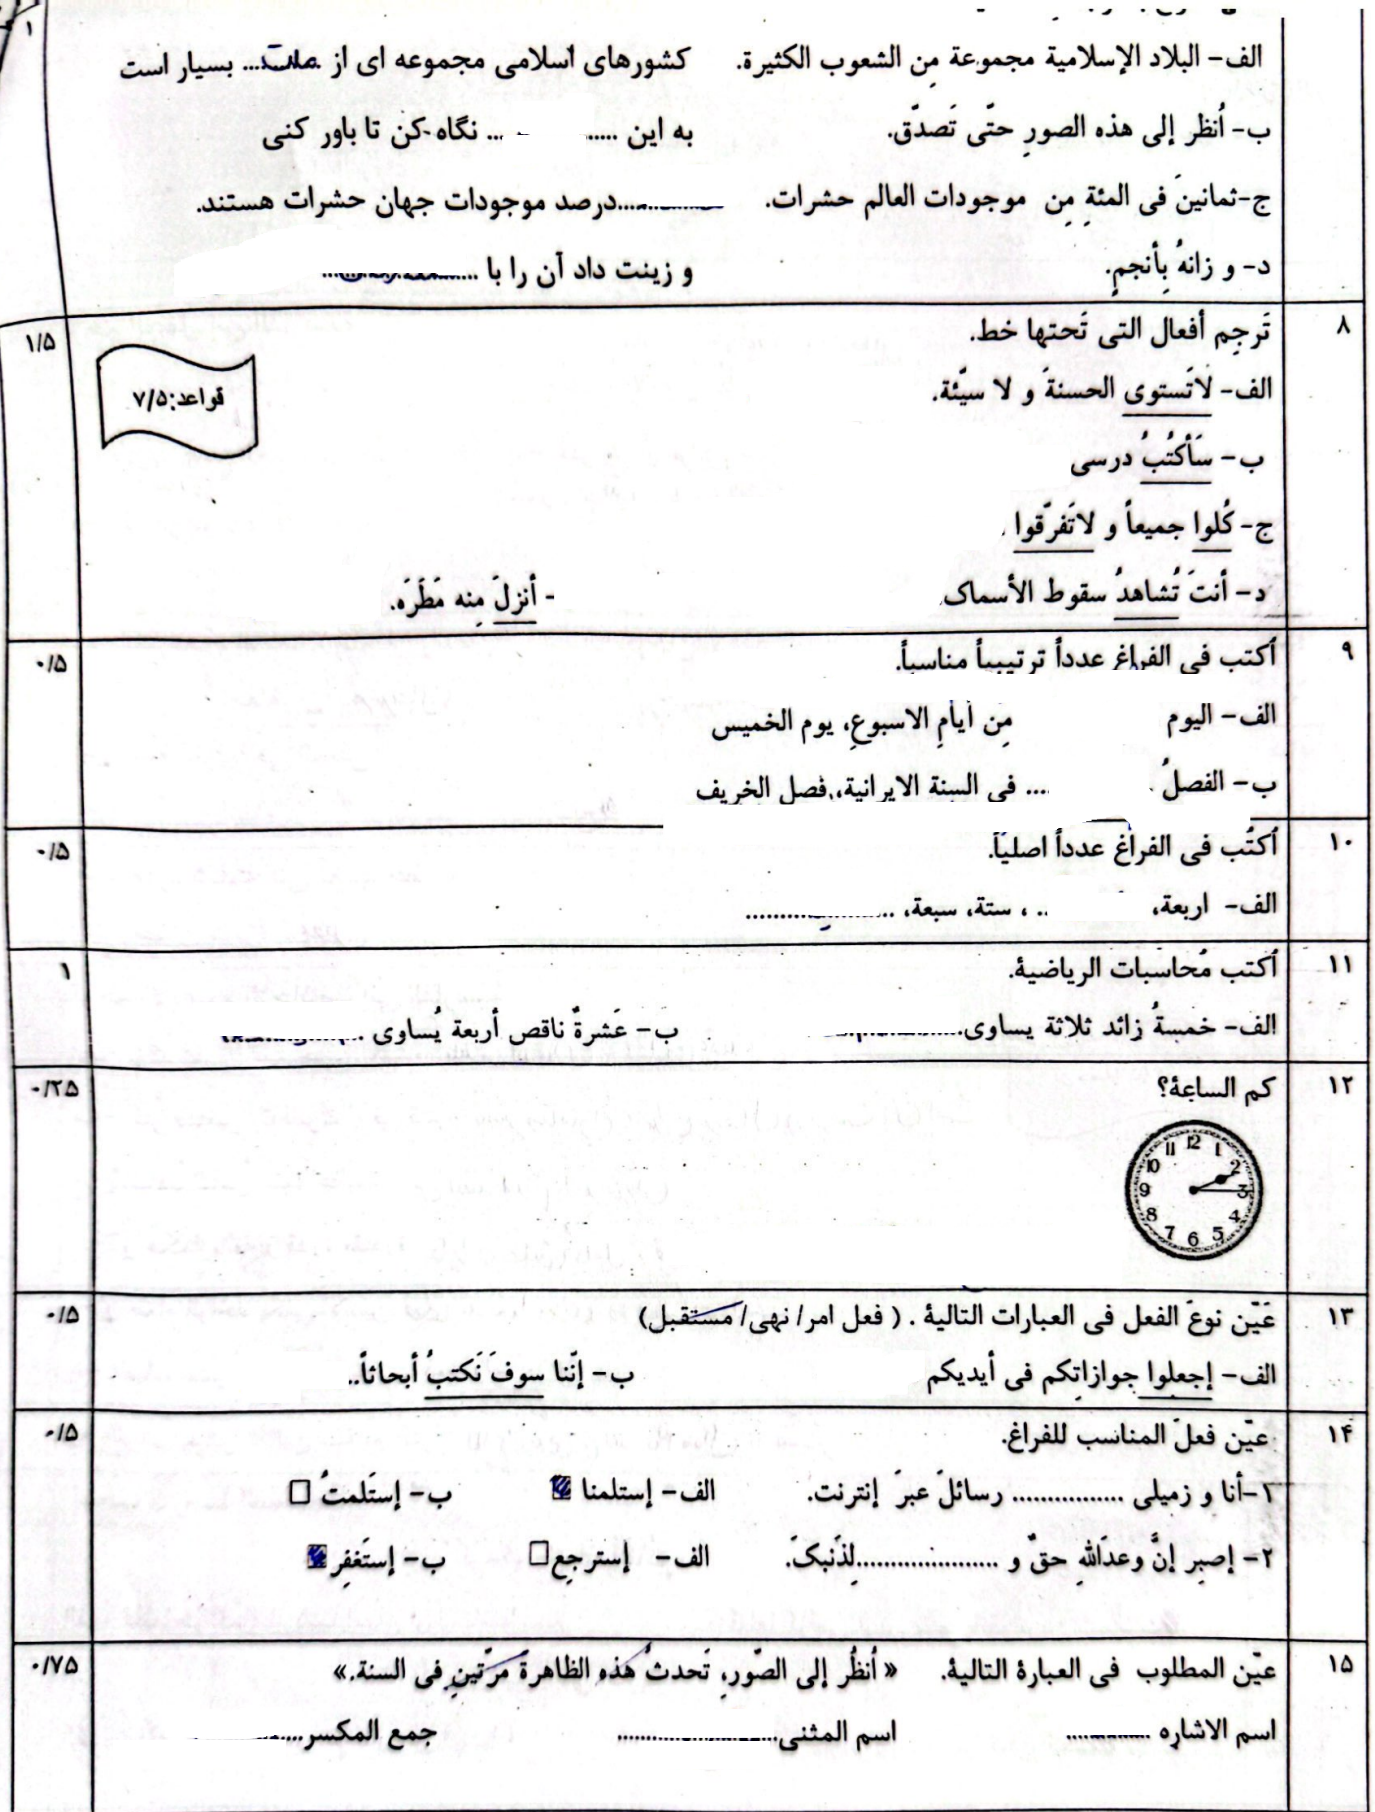 ۱
الف- البلاد الإسلامیة مجموعة مِن الشعوب الکثیرة. کشورهای اسلامی مجموعه ای از ملت... بسیار است
ب- أنظر إلی هذه الصورِ حتّی تَصدّق. به این ..... ... نگاه کن تا باور کنی
ج-ثمانینَ فی المئةِ مِن موجودات العالم حشرات. ............درصد موجودات جهان حشرات هستند.
د- و زانهُ بِأنجمٍ. و زینت داد آن را با ............
۸ تَرجِم أفعال التی تَحتها خط. ۱/۵
قواعد:۷/۵
الف- لاتَستوی الحسنةَ و لا سیّئة.
ب- سَأکتُبُ درسی
ج- کُلوا جمیعاً و لاتَفرّقوا
د- أنتَ تُشاهدُ سقوط الأسماک - أنزلَ مِنه مَطَرَه.
۹ أکتب فی الفراغ عدداً ترتیبیاً مناسباً. ۰/۵
الف- الیوم مِن أیامِ الاسبوعِ، یوم الخمیس
ب- الفصلُ .... فی السنة الایرانیة، فصل الخریف
۱۰ أکتُب فی الفراغ عدداً اصلیّاً. ۰/۵
الف- اربعة، .. ، ستة، سبعة، ....................
۱۱ أکتب مُحاسبات الریاضیة. ۱
الف- خمسةُ زائد ثلاثة یساوی............ ب- عَشرةُ ناقص أربعة یُساوی ............
۱۲ کم الساعِة؟ ۰/۲۵
12 1 2 3 4 5 6 7 8 9 10 11
۱۳ عَیّن نوعَ الفعل فی العبارات التالیة . ( فعل امر/ نهی/ مستقبل) ۰/۵
الف- إجعلوا جوازاتِکم فی أیدیکم ب- إنّنا سوفَ نَکتبُ أبحاثاً..
۱۴ عیّن فعلَ المناسب للفراغ. ۰/۵
۱-أنا و زمیلی ................ رسائلَ عبرَ إنترنت. الف- إستلمنا ب- إستَلمتُ
۲- إصبِر إنَّ وعدَاللهِ حقٌ و ....................لِذَنبکَ. الف- إسترجِع ب- إستَغفِر
۱۵ عیّن المطلوب فی العبارة التالیة. « أنظُر إلی الصّور، تَحدثُ هٰذه الظاهرةَ مَرّتینِ فی السنة.» ۰/۷۵
اسم الاشاره ............ اسم المثنی...................... جمع المکسر............